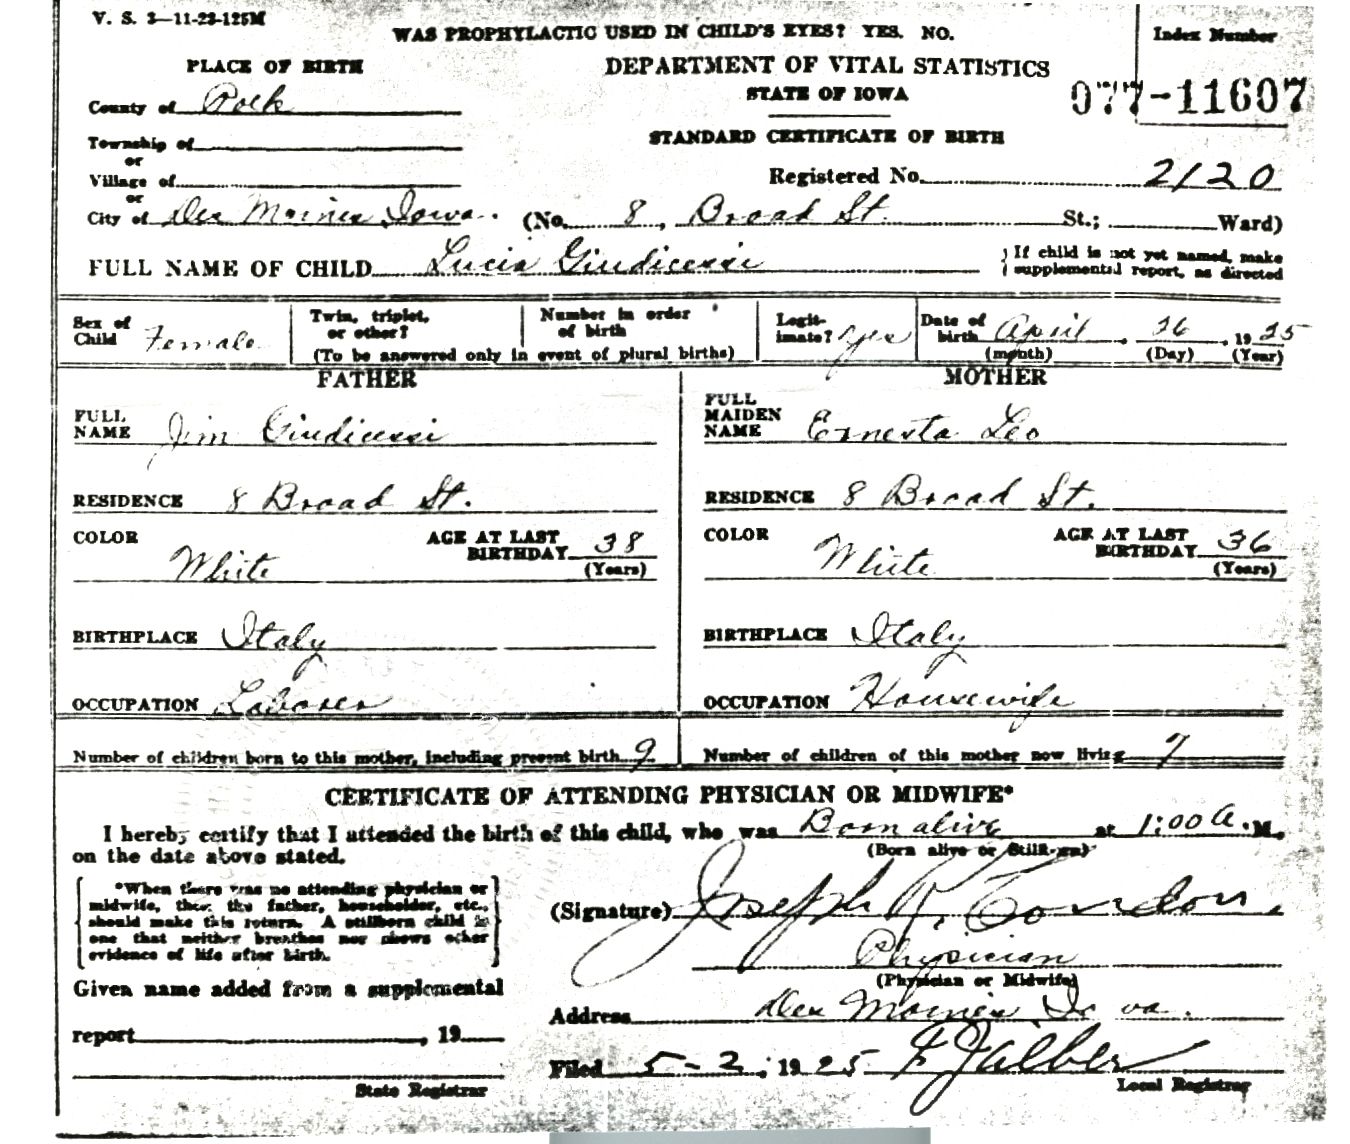 V. S. 3—11-23-125M
WAS PROPHYLACTIC USED IN CHILD'S EYES? YES. NO.
Index Number
PLACE OF BIRTH
DEPARTMENT OF VITAL STATISTICS
STATE OF IOWA
077-11607
County of Polk
STANDARD CERTIFICATE OF BIRTH
Township of
or
Village of
Registered No. 2120
or
City of Des Moines Iowa. (No. 8, Broad St. St.; Ward)
FULL NAME OF CHILD Lucia Giudicessi
If child is not yet named, make
supplemental report, as directed
Sex of Child Female
Twin, triplet, or other?
Number in order of birth
(To be answered only in event of plural births)
Legitimate? yes
Date of birth April 26, 1925
(month) (Day) (Year)
FATHER
MOTHER
FULL NAME Jim Giudicessi
FULL MAIDEN NAME Ernesta Leo
RESIDENCE 8 Broad St.
RESIDENCE 8 Broad St.
COLOR White AGE AT LAST BIRTHDAY 38 (Years)
COLOR White AGE AT LAST BIRTHDAY 36 (Years)
BIRTHPLACE Italy
BIRTHPLACE Italy
OCCUPATION Laborer
OCCUPATION Housewife
Number of children born to this mother, including present birth 9
Number of children of this mother now living 7
CERTIFICATE OF ATTENDING PHYSICIAN OR MIDWIFE*
I hereby certify that I attended the birth of this child, who was Born alive at 1:00 A. M.
(Born alive or Stillborn)
on the date above stated.
*When there was no attending physician or
midwife, then the father, householder, etc.,
should make this return. A stillborn child is
one that neither breathes nor shows other
evidence of life after birth.
(Signature) Joseph
Physician
(Physician or Midwife)
Given name added from a supplemental
report, 19
Address Des Moines Iowa.
Filed 5-2, 1925
State Registrar
Local Registrar